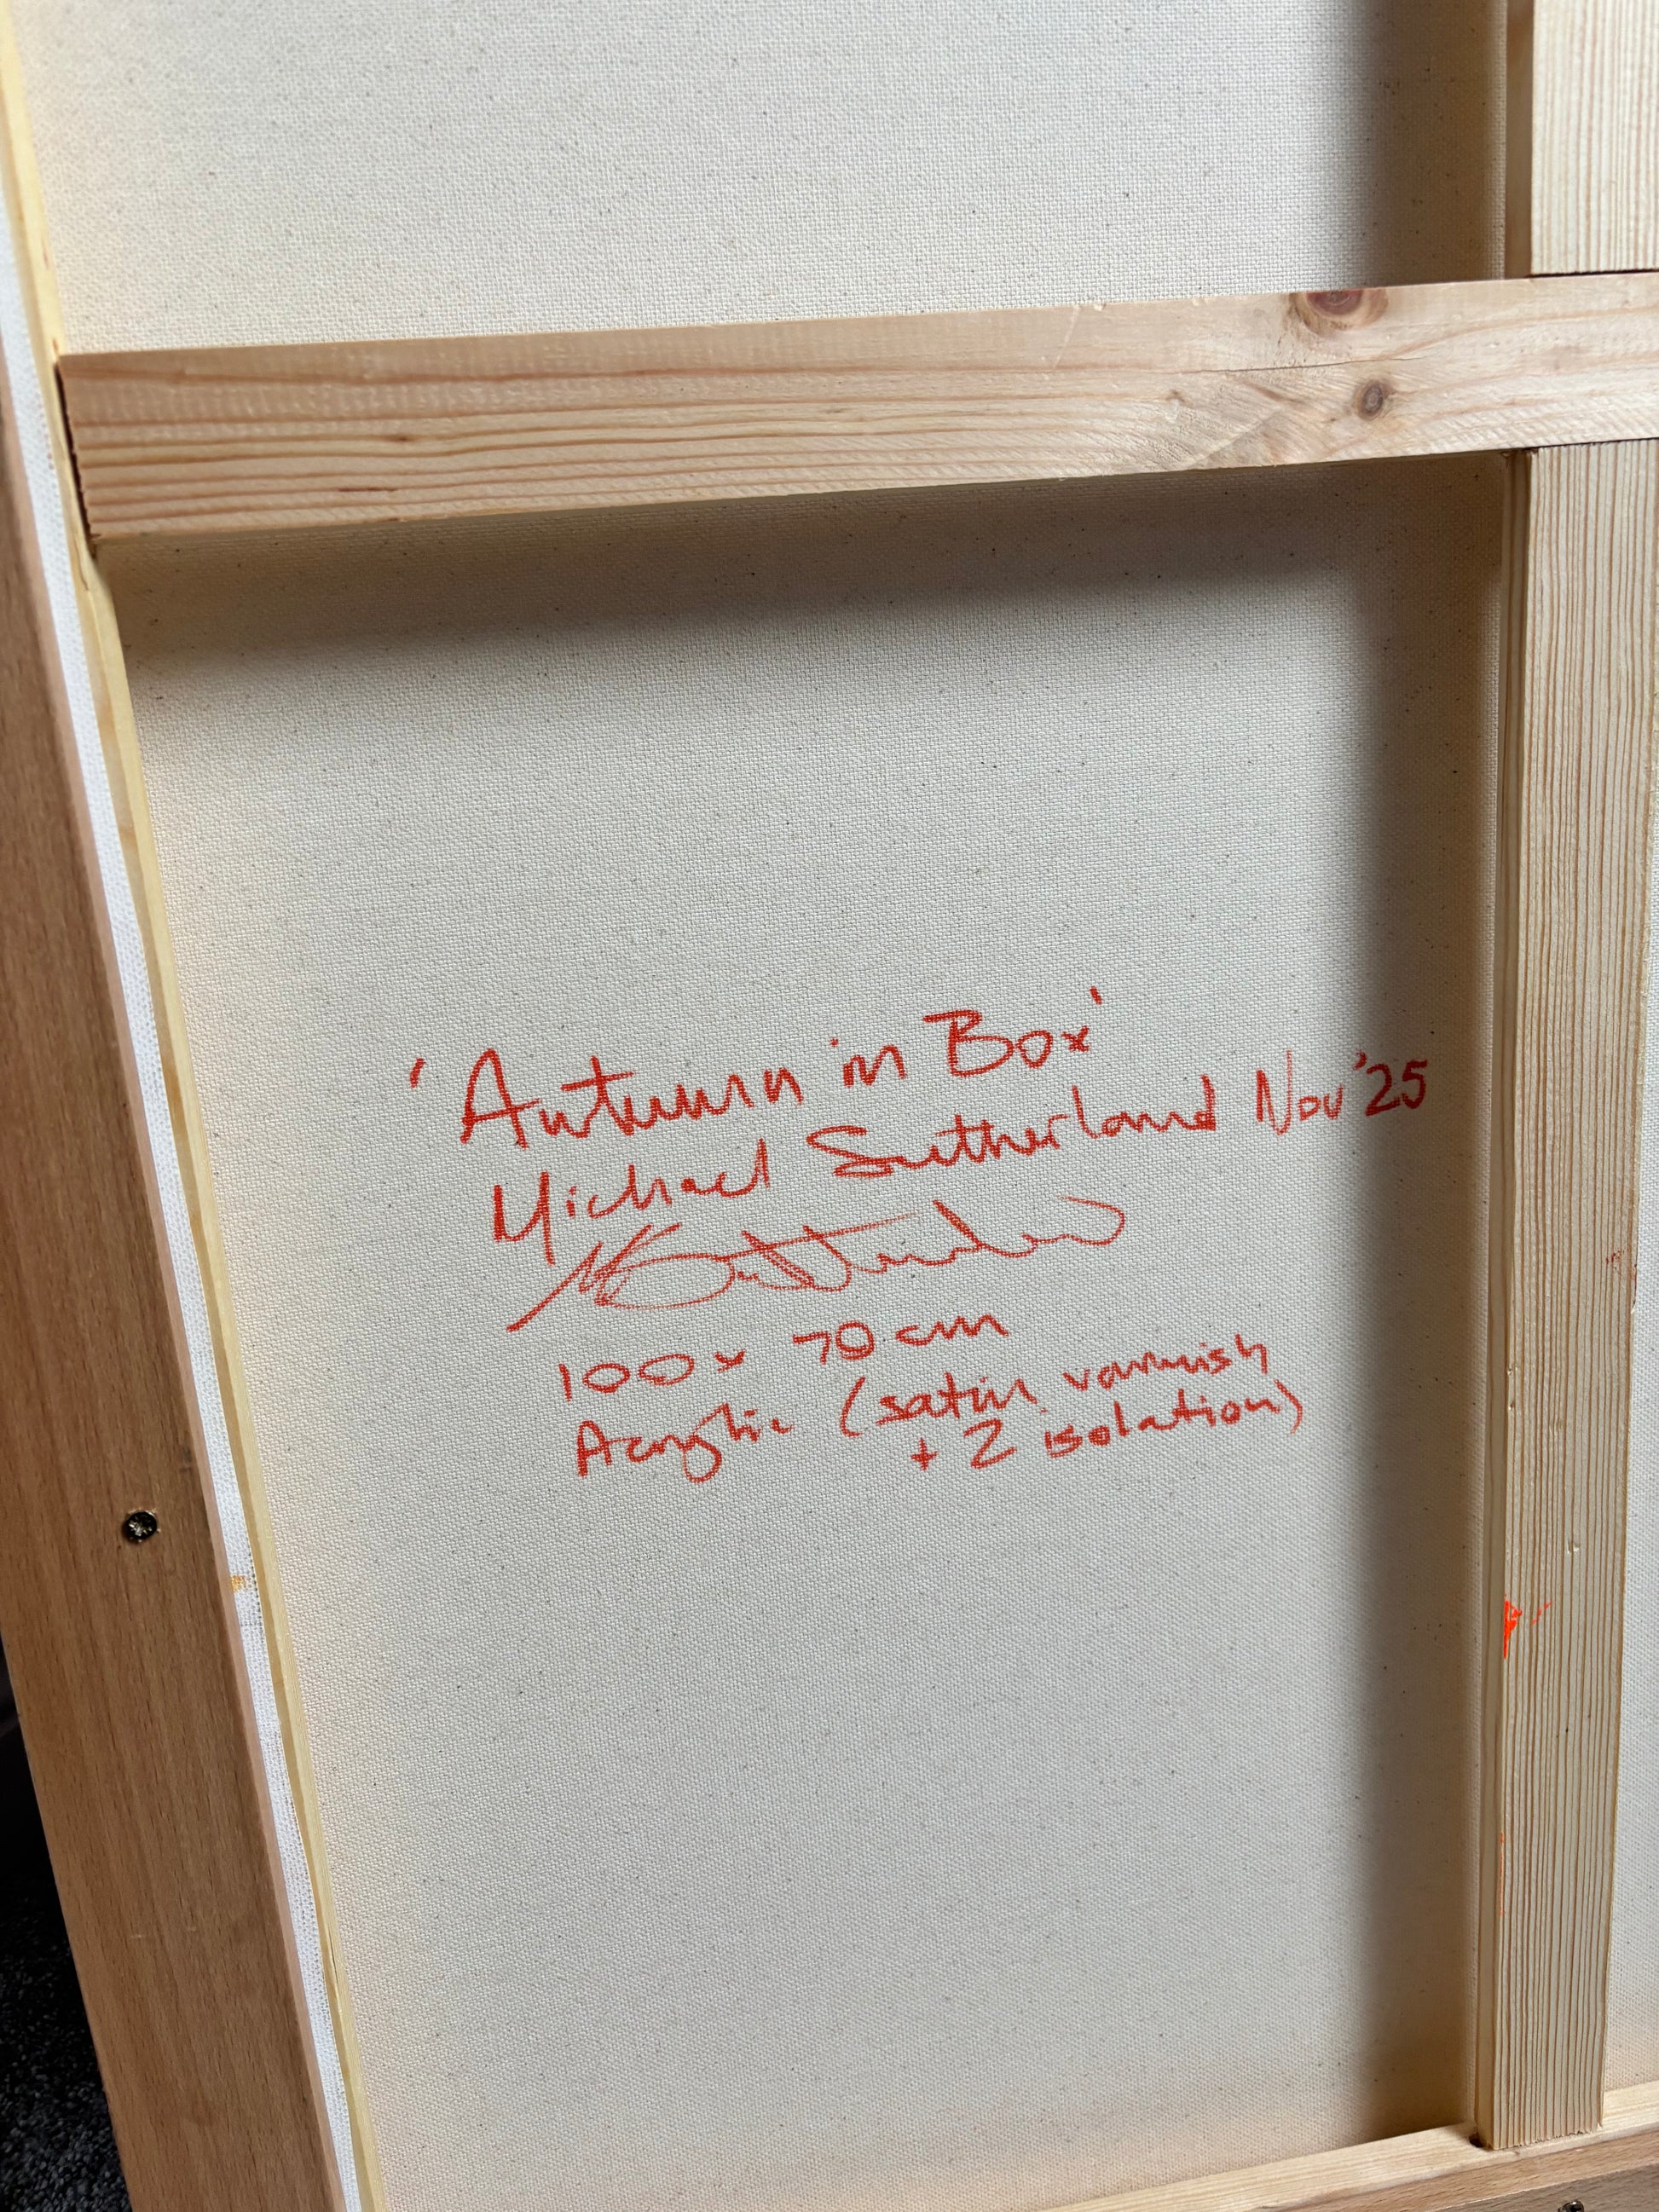 'Autumn in Box'
Michael Sutherland Nov '25
MSutherland
100 x 70 cm
Acrylic (satin varnish
+ 2 isolation)